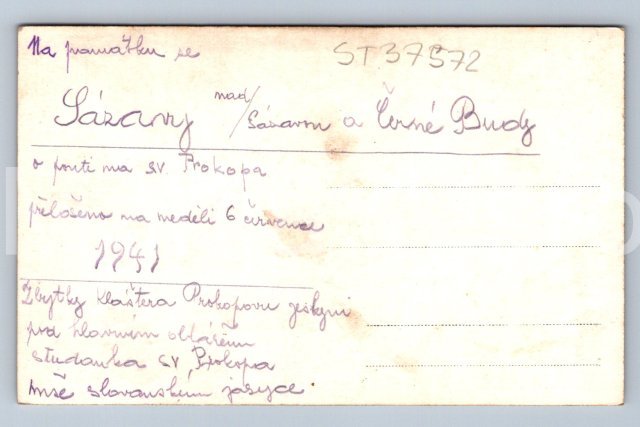 Na památku se
ST 37572
Sázavy nad/Sázavou a Černé Budy
o pouti na sv. Prokopa
přeloženo na neděli 6 července
1941
Zbytky kláštera Prokopovu jeskyni
pod hlavním oltářem
studánka sv. Prokopa
mše slovanským jazyce.